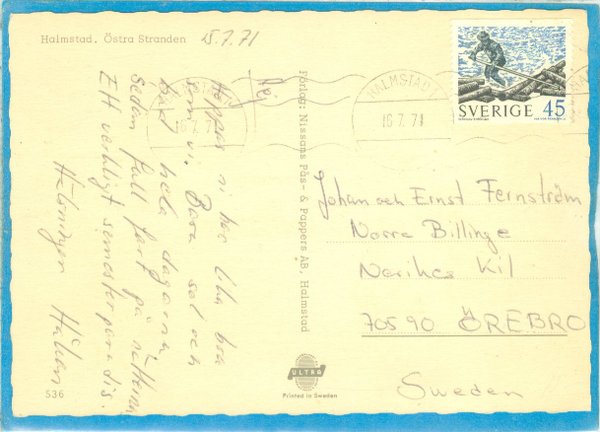 Halmstad. Östra Stranden
15.7.71
Hej
Hoppas ni har lika bra
som vi. Bara sol och
bad hela dagarna
Sedan full fart på nätterna
Ett verkligt semesterparadis.
Hälsningar Håkan
536
Förlag: Nissans Pås- & Pappers AB, Halmstad
ULTRA
Printed in Sweden
HALMSTAD 1
16.7.71
SVERIGE 45
Johan och Ernst Fernström
Norra Billinge
Närikes Kil
705 90 ÖREBRO
Sweden